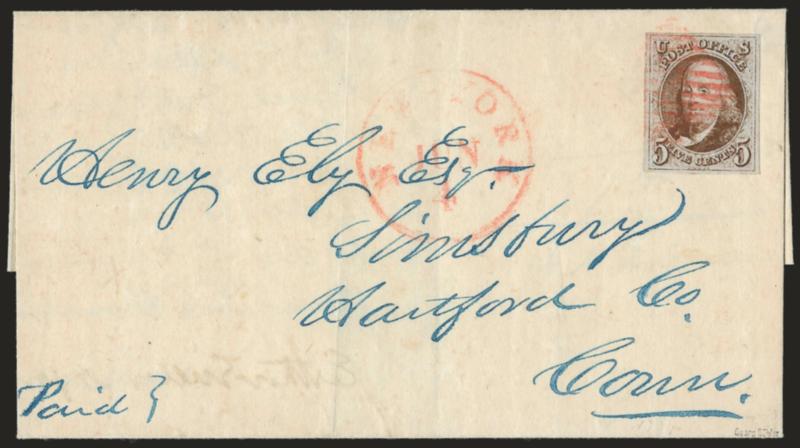 U S
POST OFFICE
5 FIVE CENTS 5
NEW YORK
JUN
4
Henry Ely Esq.
Simsbury
Hartford Co.
Conn.
Paid